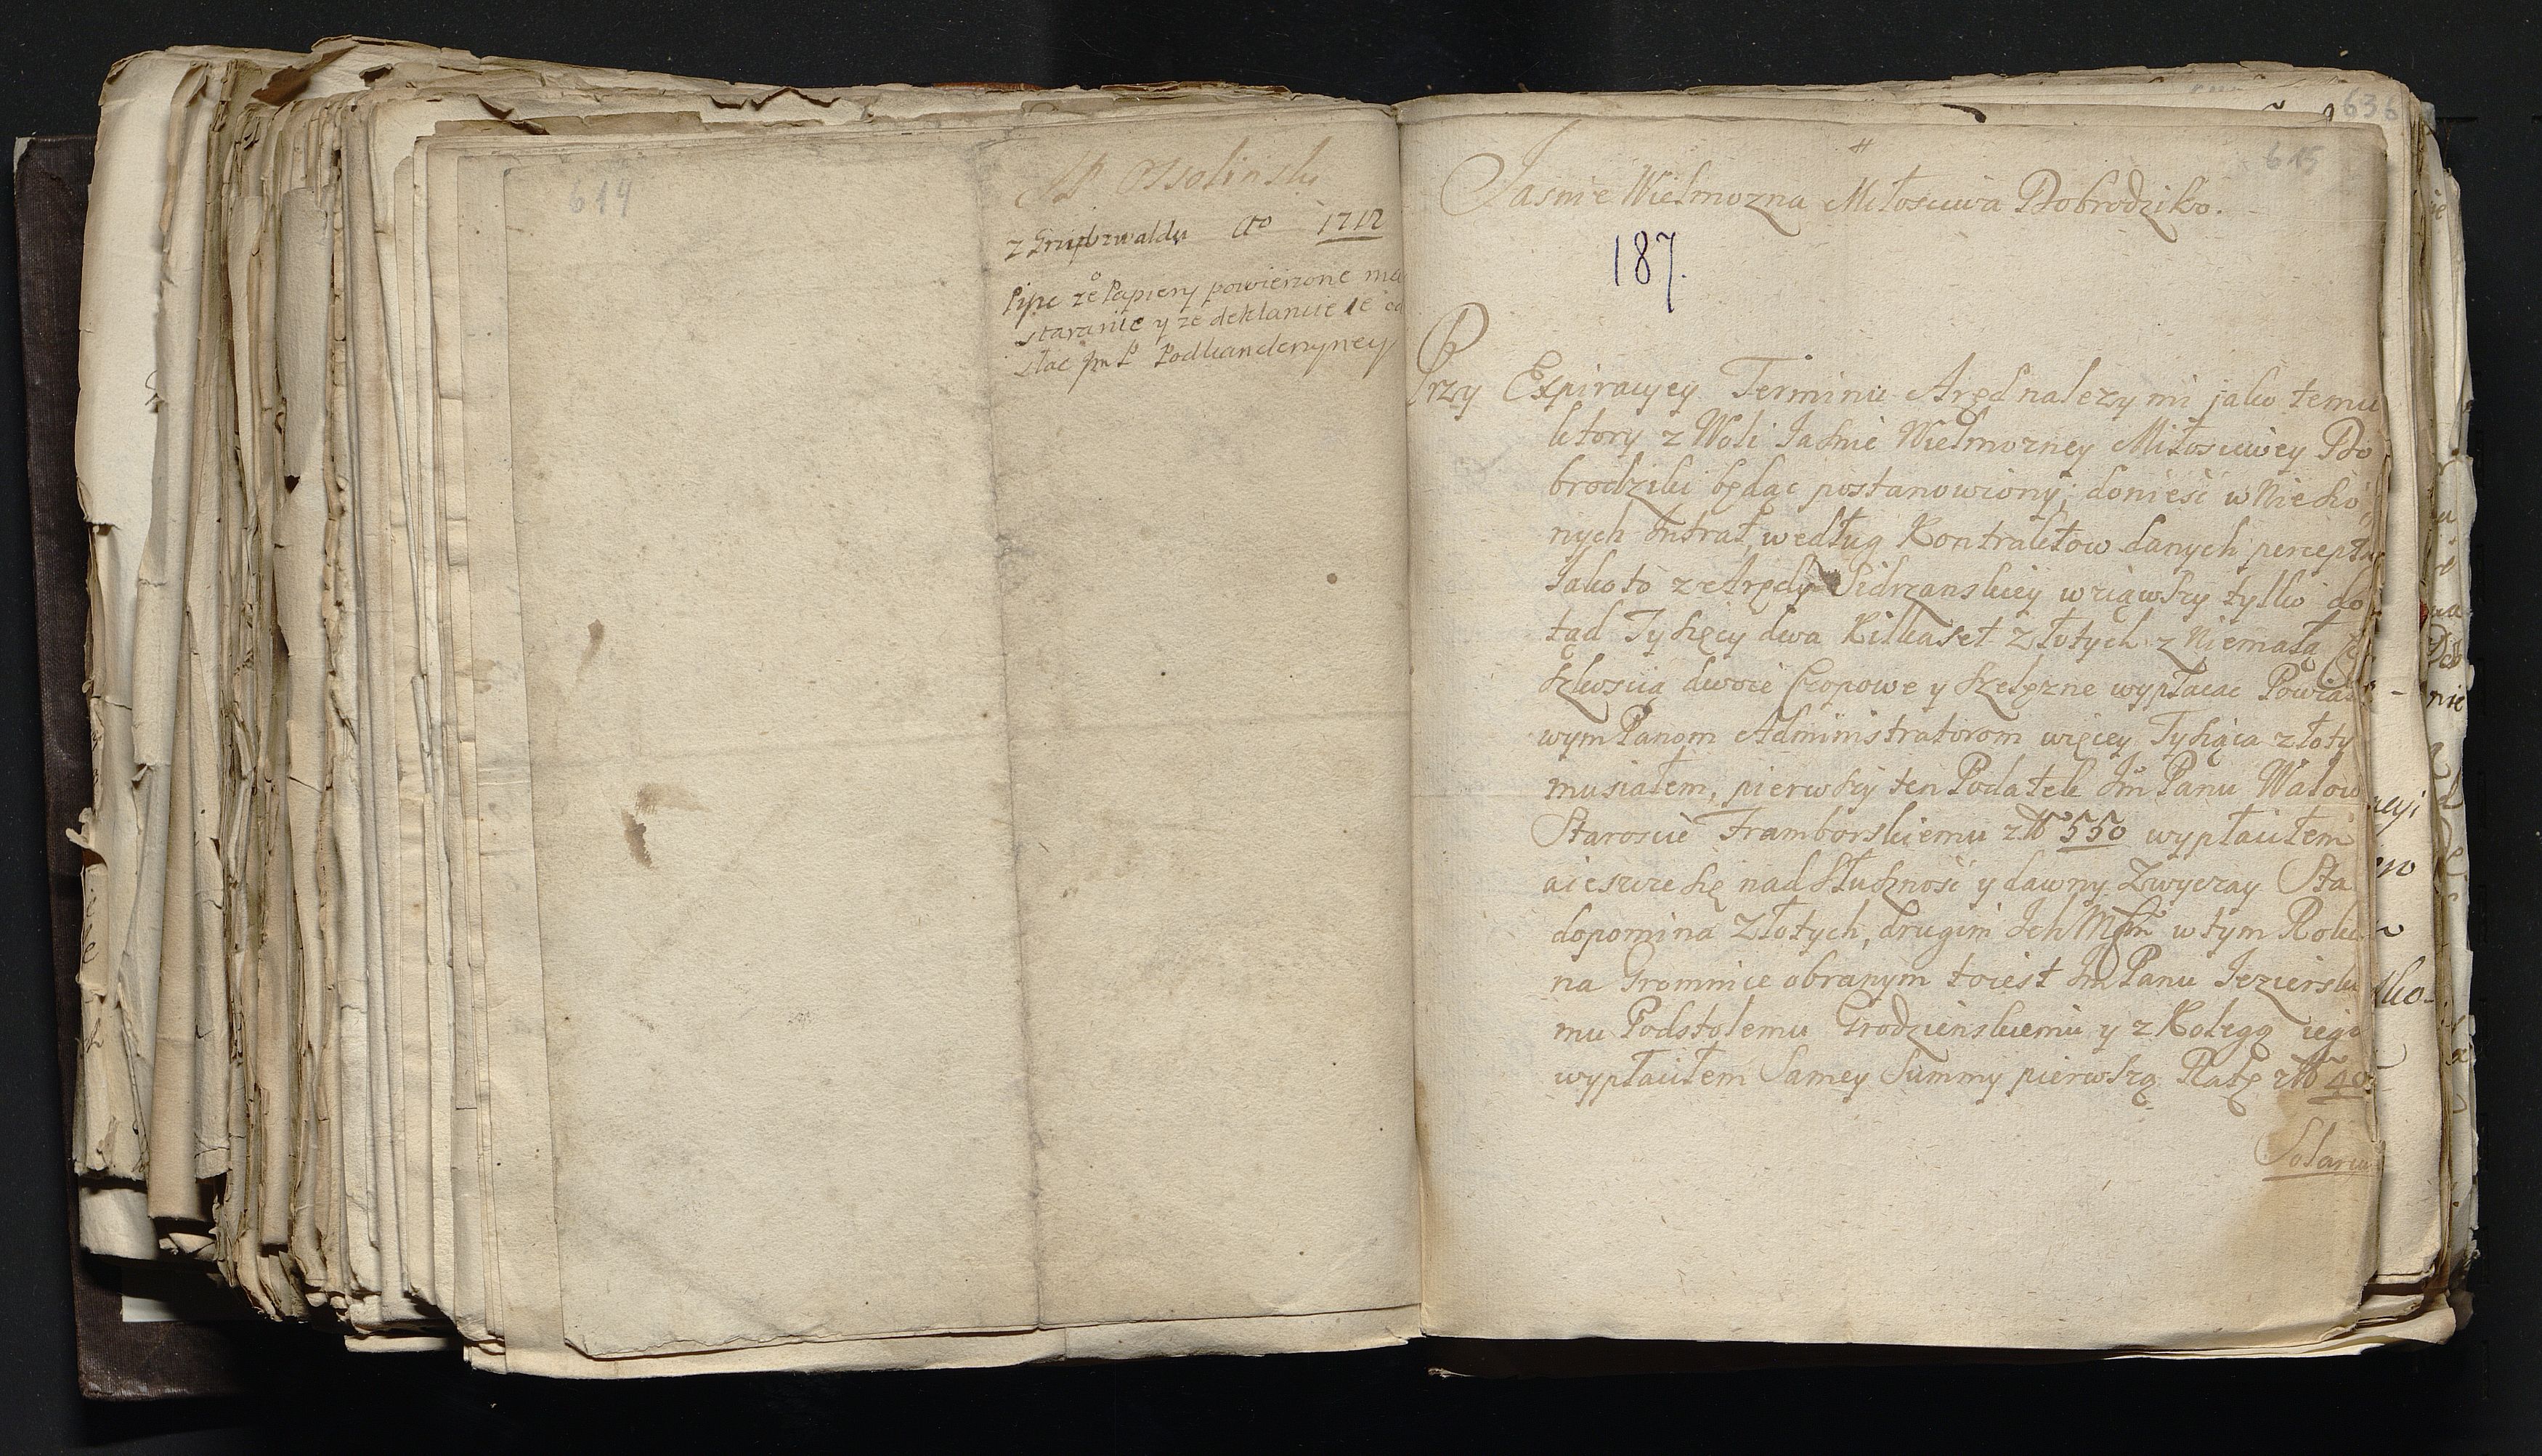 614
JP Ossolinski
z Gripswaldu Ao 1712
Pisze że Papiery powierzone ma
staranie y ze deklaruie ie od
słac Jm P Podkanclerzyney
636
615
Jasnie Wielmozna Miłosciwa Dobrodziko.
187.
Przy Expiracyey Terminu Aręd nalezy mi jako temu
ktory z Woli Jasnie Wielmozney Miłosciwey Do
brodziki będąc postanowiony; doniesc w Niesko
nych Intrat, według Kontraktow danych percepta
Jako to z Arędy Sidrzanskiey wziąwszy tylko do
tąd Tysięcy dwa Kilkaset Złotych z Niemałą
szkoscią dwoie Czopowe y szelęzne wypłacac Powiato
wym Panom Administratorom więcey Tysiąca złoty
musiałem, pierwszy ten Podatek Jm Panu Walow
Staroscie Framborskiemu zło 550 wypłaciłem
a ieszcze się nad słusznosc y dawny Zwyczay Sta
dopomina Złotych, drugim Ich Msm w tym Roku
na Gromnice obranym toiest Jm Panu Ieziersku
mu Podstolemu Grodzienskiemu y z Kolegą iego
wypłaciłem Samey Summy pierwszą Ratę zło 40
Solariu